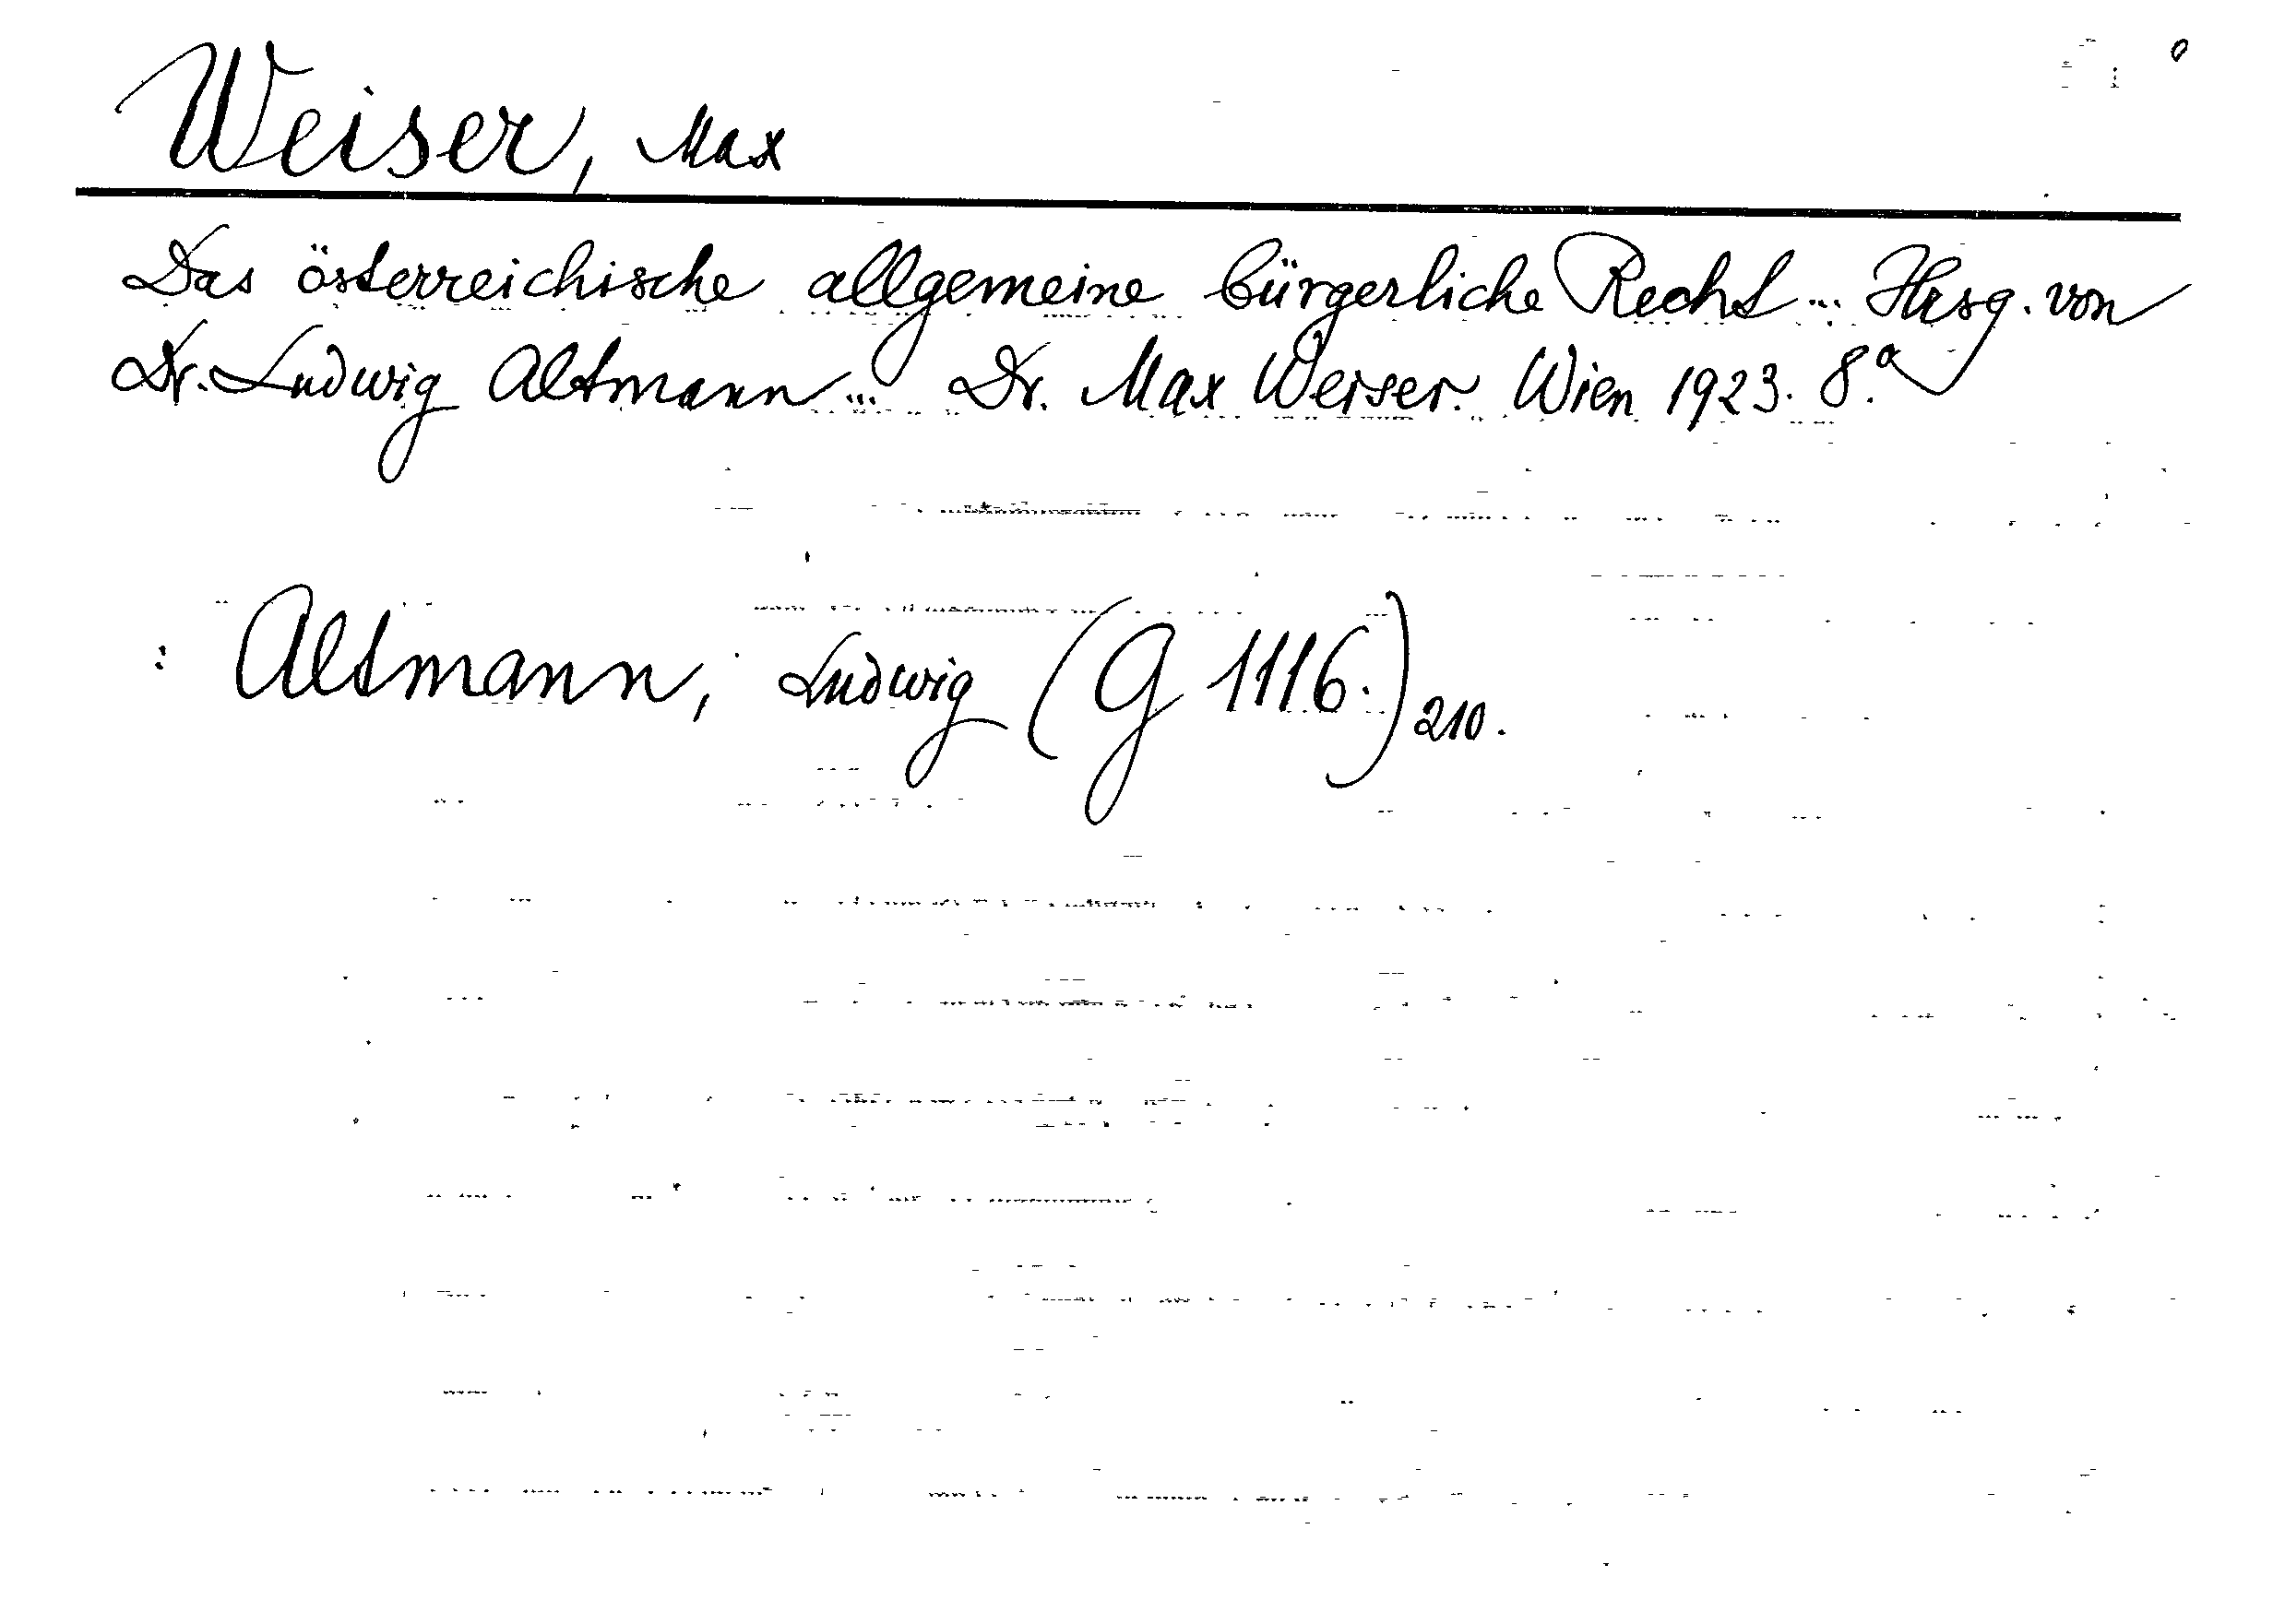 Weiser, Max
Das österreichische allgemeine bürgerliche Recht... Hrsg. von
Dr. Ludwig Altmann... Dr. Max Weiser. Wien 1923. 8.º
: Altmann, Ludwig (G 1116.) 210.